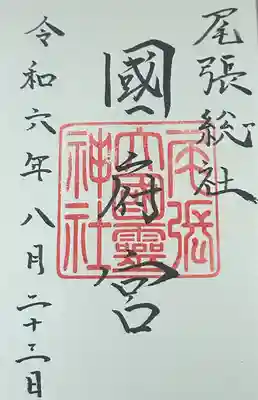 尾張総社
國府宮
尾張
大國霊
神社
令和六年八月二十三日